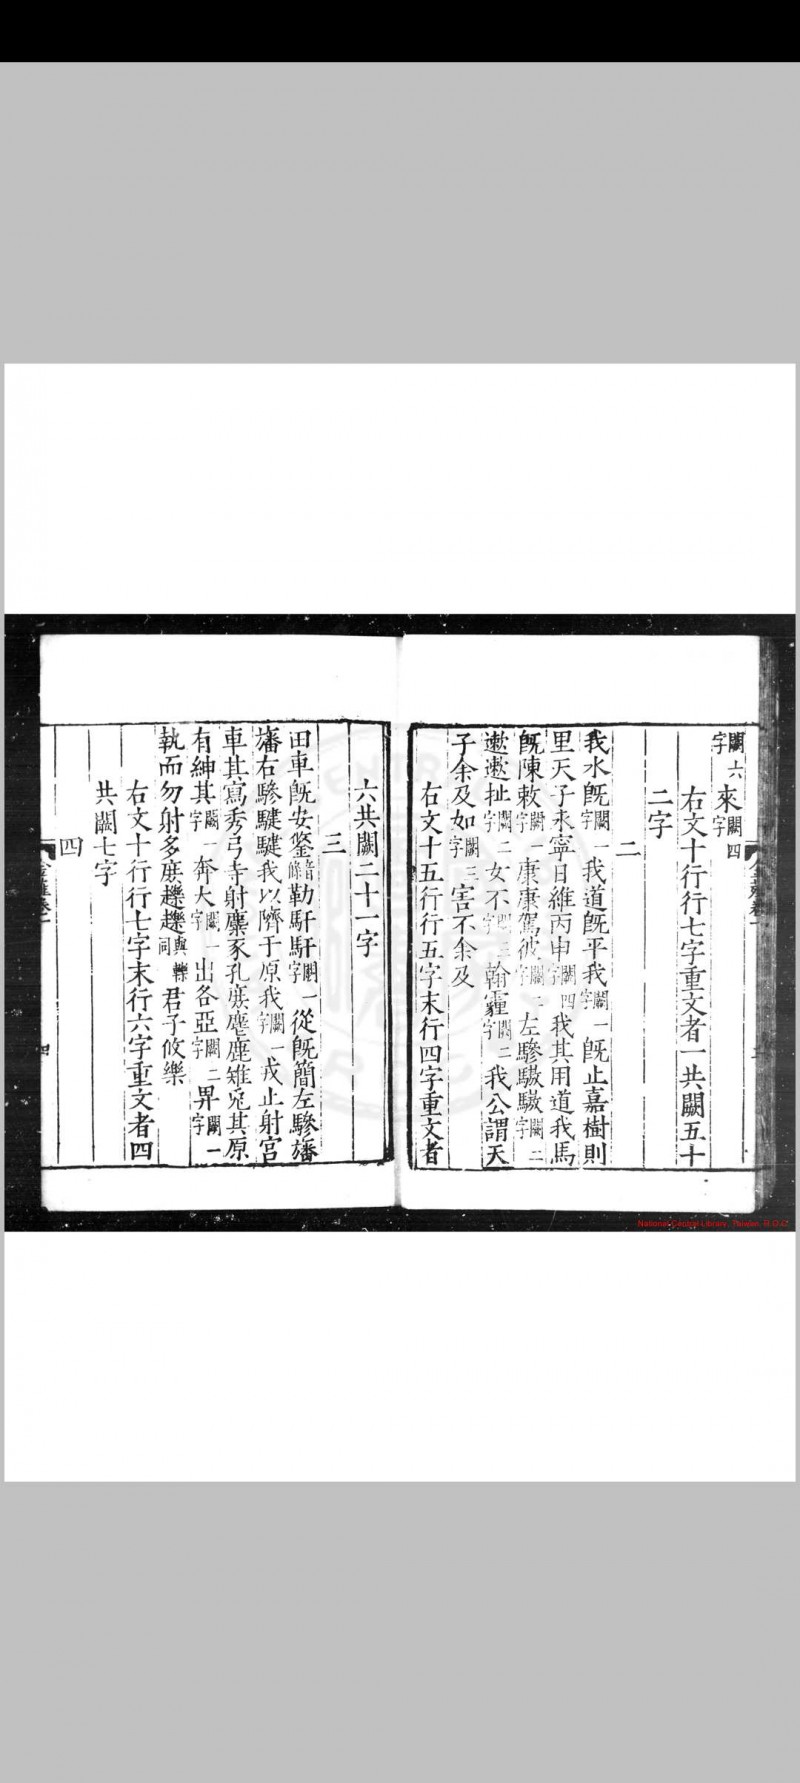 闕六字來闕四字
右文十行行七字重文者一共闕五十
二字
二
我水既闕一字我道既平我闕一字既止嘉樹則
里天子永寧日維丙申闕四字我其用道我馬
既陳敕闕一字康康駕彼闕一字左驂驐驐闕二字
遬遬扯闕二字女不闕三字翰霾闕二字我公謂天
子余及如闕三字害不余及
右文十五行行五字末行四字重文者
六共闕二十一字
三
田車既安鋚音條勒馯馯闕一字從既簡左驂旛
旛右驂騝騝我以隮于原我闕一字戎止射宮
車其寫秀弓寺射麋豕孔庶麀鹿雉兎其原
有紳其闕一字奔大闕一字出各亞闕二字昦闕一字
執而勿射多庶趮趮與轢同君子攸樂
右文十行行七字末行六字重文者四
共闕七字
四
金薤卷一
四
National Central Library, Taiwan, R.O.C